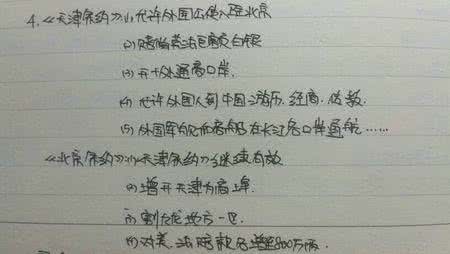 4.《天津条约》(1)允许外国公使入驻北京
(2)赔偿英法巨额白银
(3)开十处通商口岸.
(4)允许外国人到中国游历.经商.传教.
(5)外国军舰和商船在长江各口岸通航……
《北京条约》(1)《天津条约》继续有效
(2)增开天津为商埠.
(3)割九龙地方一区
(4)对英.法赔款各增至800万两.